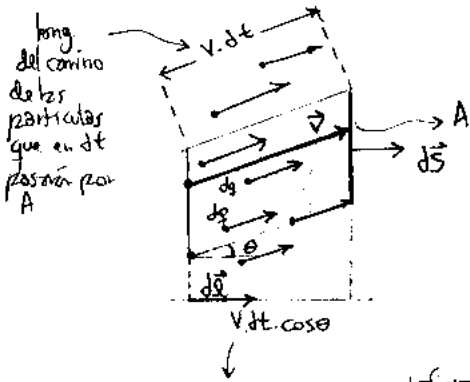 long.
del camino
de las
partículas
que en dt
pasarán por
A
V.dt
V⃗
A
dS⃗
dq
dq
θ
dl⃗
V.dt.cosθ